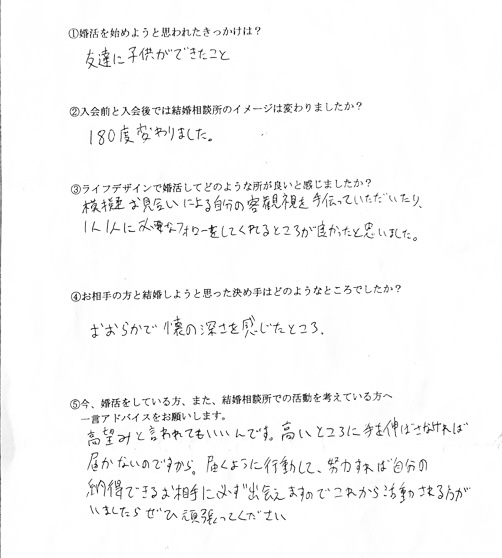 ①婚活を始めようと思われたきっかけは？
友達に子供ができたこと
②入会前と入会後では結婚相談所のイメージは変わりましたか？
180度変わりました。
③ライフデザインで婚活してどのような所が良いと感じましたか？
模擬お見合いによる自分の客観視を手伝っていただいたり、
1人1人に必要なフォローをしてくれるところが良かったと思いました。
④お相手の方と結婚しようと思った決め手はどのようなところでしたか？
おおらかで懐の深さを感じたところ、
⑤今、婚活をしている方、また、結婚相談所での活動を考えている方へ
一言アドバイスをお願いします。
高望みと言われてもいいんです。高いところに手を伸ばさなければ
届かないのですから。届くように行動して、努力すれば自分の
納得できるお相手に必ず出会えますのでこれから活動される方が
いましたらぜひ頑張ってください